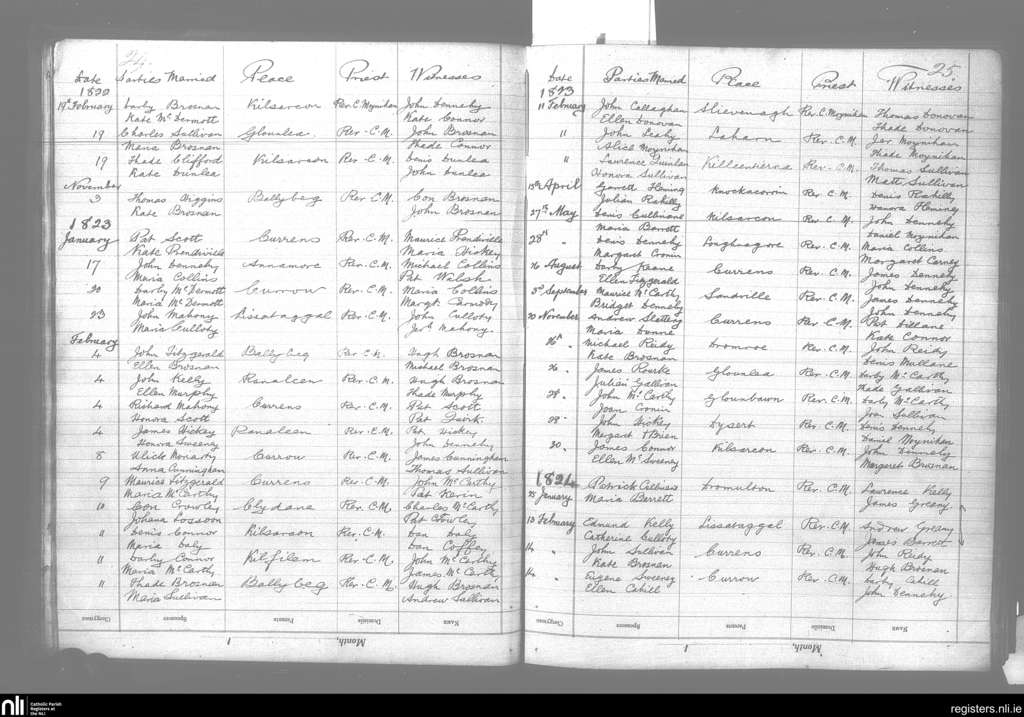 24.
Date Parties Married Place Priest Witnesses
1822
19th February Darby Brosnan Kilsarcon Rev. C. Moynihan John Dennehy
Kate McDermott Kate Connor
19 Charles Sullivan Glounlea. Rev. C.M. John Brosnan
Maria Brosnan Thade Connor
19 Thade Clifford Kilsarcon Rev. C.M. Denis Dunlea
Kate Dunlea John Dunlea
November
3 Thomas Higgins Ballybeg Rev. C.M. Con Brosnan
Kate Brosnan John Brosnan
1823
January Pat Scott Currens Rev. C.M. Maurice Prendiville
Kate Prendiville Maria Hickey
17 John Dennehy Annamore Rev. C.M. Michael Collins
Maria Collins Pat Walsh
20 Darby McDermott Currow Rev. C.M. Maria Collins
Maria McDermott Margt. Carnody
23 John Mahony Lisataggal Rev. C.M. John Culloty
Maria Culloty Mahony.
February
4 John Fitzgerald Ballybeg Rev. C.M. Hugh Brosnan
Ellen Brosnan Michael Brosnan
4 John Kelly Ranaleen Rev. C.M. Hugh Brosnan
Ellen Murphy Thade Murphy
4 Richard Mahony Currens Rev. C.M. Pat Scott
Honora Scott Pat Quirk
4 James Hickey Ranaleen Rev. C.M. Pat Hickey
Honora Sweeney John Dennehy
8 Ulick Moriarty Currow Rev. C.M. James Cunningham
Anna Cunningham Thomas Sullivan
9 Maurice Fitzgerald Currens Rev. C.M. John McCarthy
Maria McCarthy Pat Kevin
10 Con Crowley Clydane Rev. C.M. Charles McCarthy
Johana Lossoon Pat Crowley
11 Denis Connor Kilsarcon Rev. C.M. Dan Daly
Maria Daly Dan Coffey
11 Darby Connor Kilfilem Rev. C.M. John McCarthy
Maria McCarthy James McCarthy
11 Thade Brosnan Ballybeg Rev. C.M. Hugh Brosnan
Maria Sullivan Andrew Sullivan
Clergyman Sponsors Parents Domicile Name
Month, 1
25
Date Parties Married Place Priest Witnesses
1823
11 February John Callaghan Slievenagh Rev. C. Moynihan Thomas Donovan
Ellen Donovan Thade Donovan
11 John Leahy Laharn Rev. C.M. Jer Moynihan
Alice Moynihan Thade Moynihan
11 Laurence Quinlan Killeentierna Rev. C.M. Thomas Sullivan
Honora Sullivan Matt Sullivan
13th April Garrett Fleming Knockacorrin Rev. C.M. Denis Rahilly
Julian Rahilly Hanora Fleming
27th May Denis Cullinane Kilsarcon Rev. C.M. John Dennehy
Maria Barrett Daniel Moynihan
28th " Denis Dennehy Loughnagore Rev. C.M. Maria Collins
Margaret Cronin Margaret Carney
16 August Darby Keane Currens Rev. C.M. James Dennehy
Ellen Fitzgerald John Dennehy
3rd September Maurice McCarthy Sandville Rev. C.M. James Dennehy
Bridget Dennehy John Dennehy
20 November Andrew Slattery Currens Rev. C.M. Pat Dillane
Maria Dunne Kate Connor
26th " Michael Reidy Dromroe Rev. C.M. John Reidy
Kate Brosnan Denis Mullane
26 " James Rourke Glounlea Rev. C.M. Darby McCarthy
Julian Gallivan Thade Gallivan
28 " John McCarthy Glounbawn Rev. C.M. Darby McCarthy
Joan Cronin Joan Sullivan
28 " John Hickey Dysert Rev. C.M. Denis Dennehy
Margaret O'Brien Daniel Moynihan
30 " James Connor Kilsarcon Rev. C.M. John Dennehy
Ellen McSweeney Margaret Brosnan
1824
25 January Patrick Dromulton Rev. C.M. Laurence Kelly
Maria Barrett James Greany
13 February Edmund Kelly Lissataggal Rev. C.M. Andrew Greany
Catherine Culloty James Barrett
14 " John Sullivan Currens Rev. C.M. John Reidy
Kate Brosnan Hugh Brosnan
14 " Eugene Sweeney Currow Rev. C.M. Darby Cahill
Ellen Cahill John Dennehy
Clergyman Sponsors Parents Domicile Name
Month, 1
nli Catholic Parish Registers at the NLI
registers.nli.ie